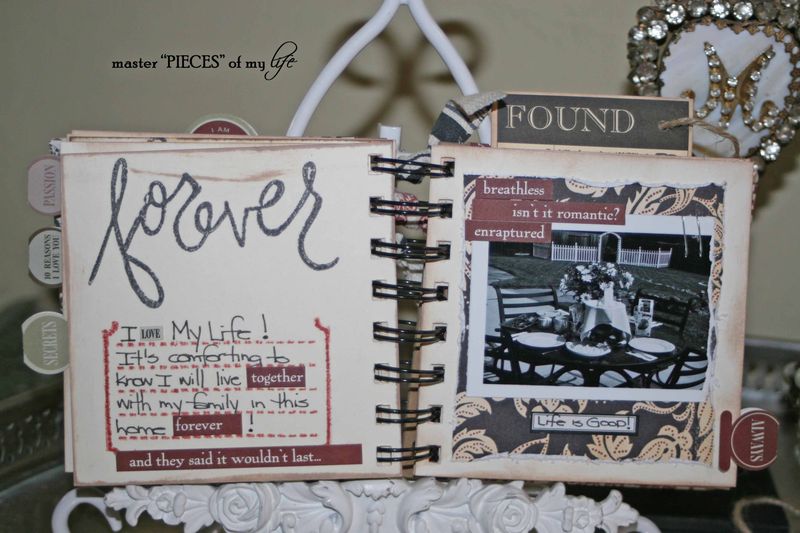 master “PIECES” of my life
I AM
FOUND
PASSION
10 REASONS
I LOVE YOU
SECRETS
forever
I LOVE My Life!
It's comforting to
know I will live together
with my family in this
home forever!
and they said it wouldn't last...
breathless
isn't it romantic?
enraptured
Life is Good!
ALWAYS
M